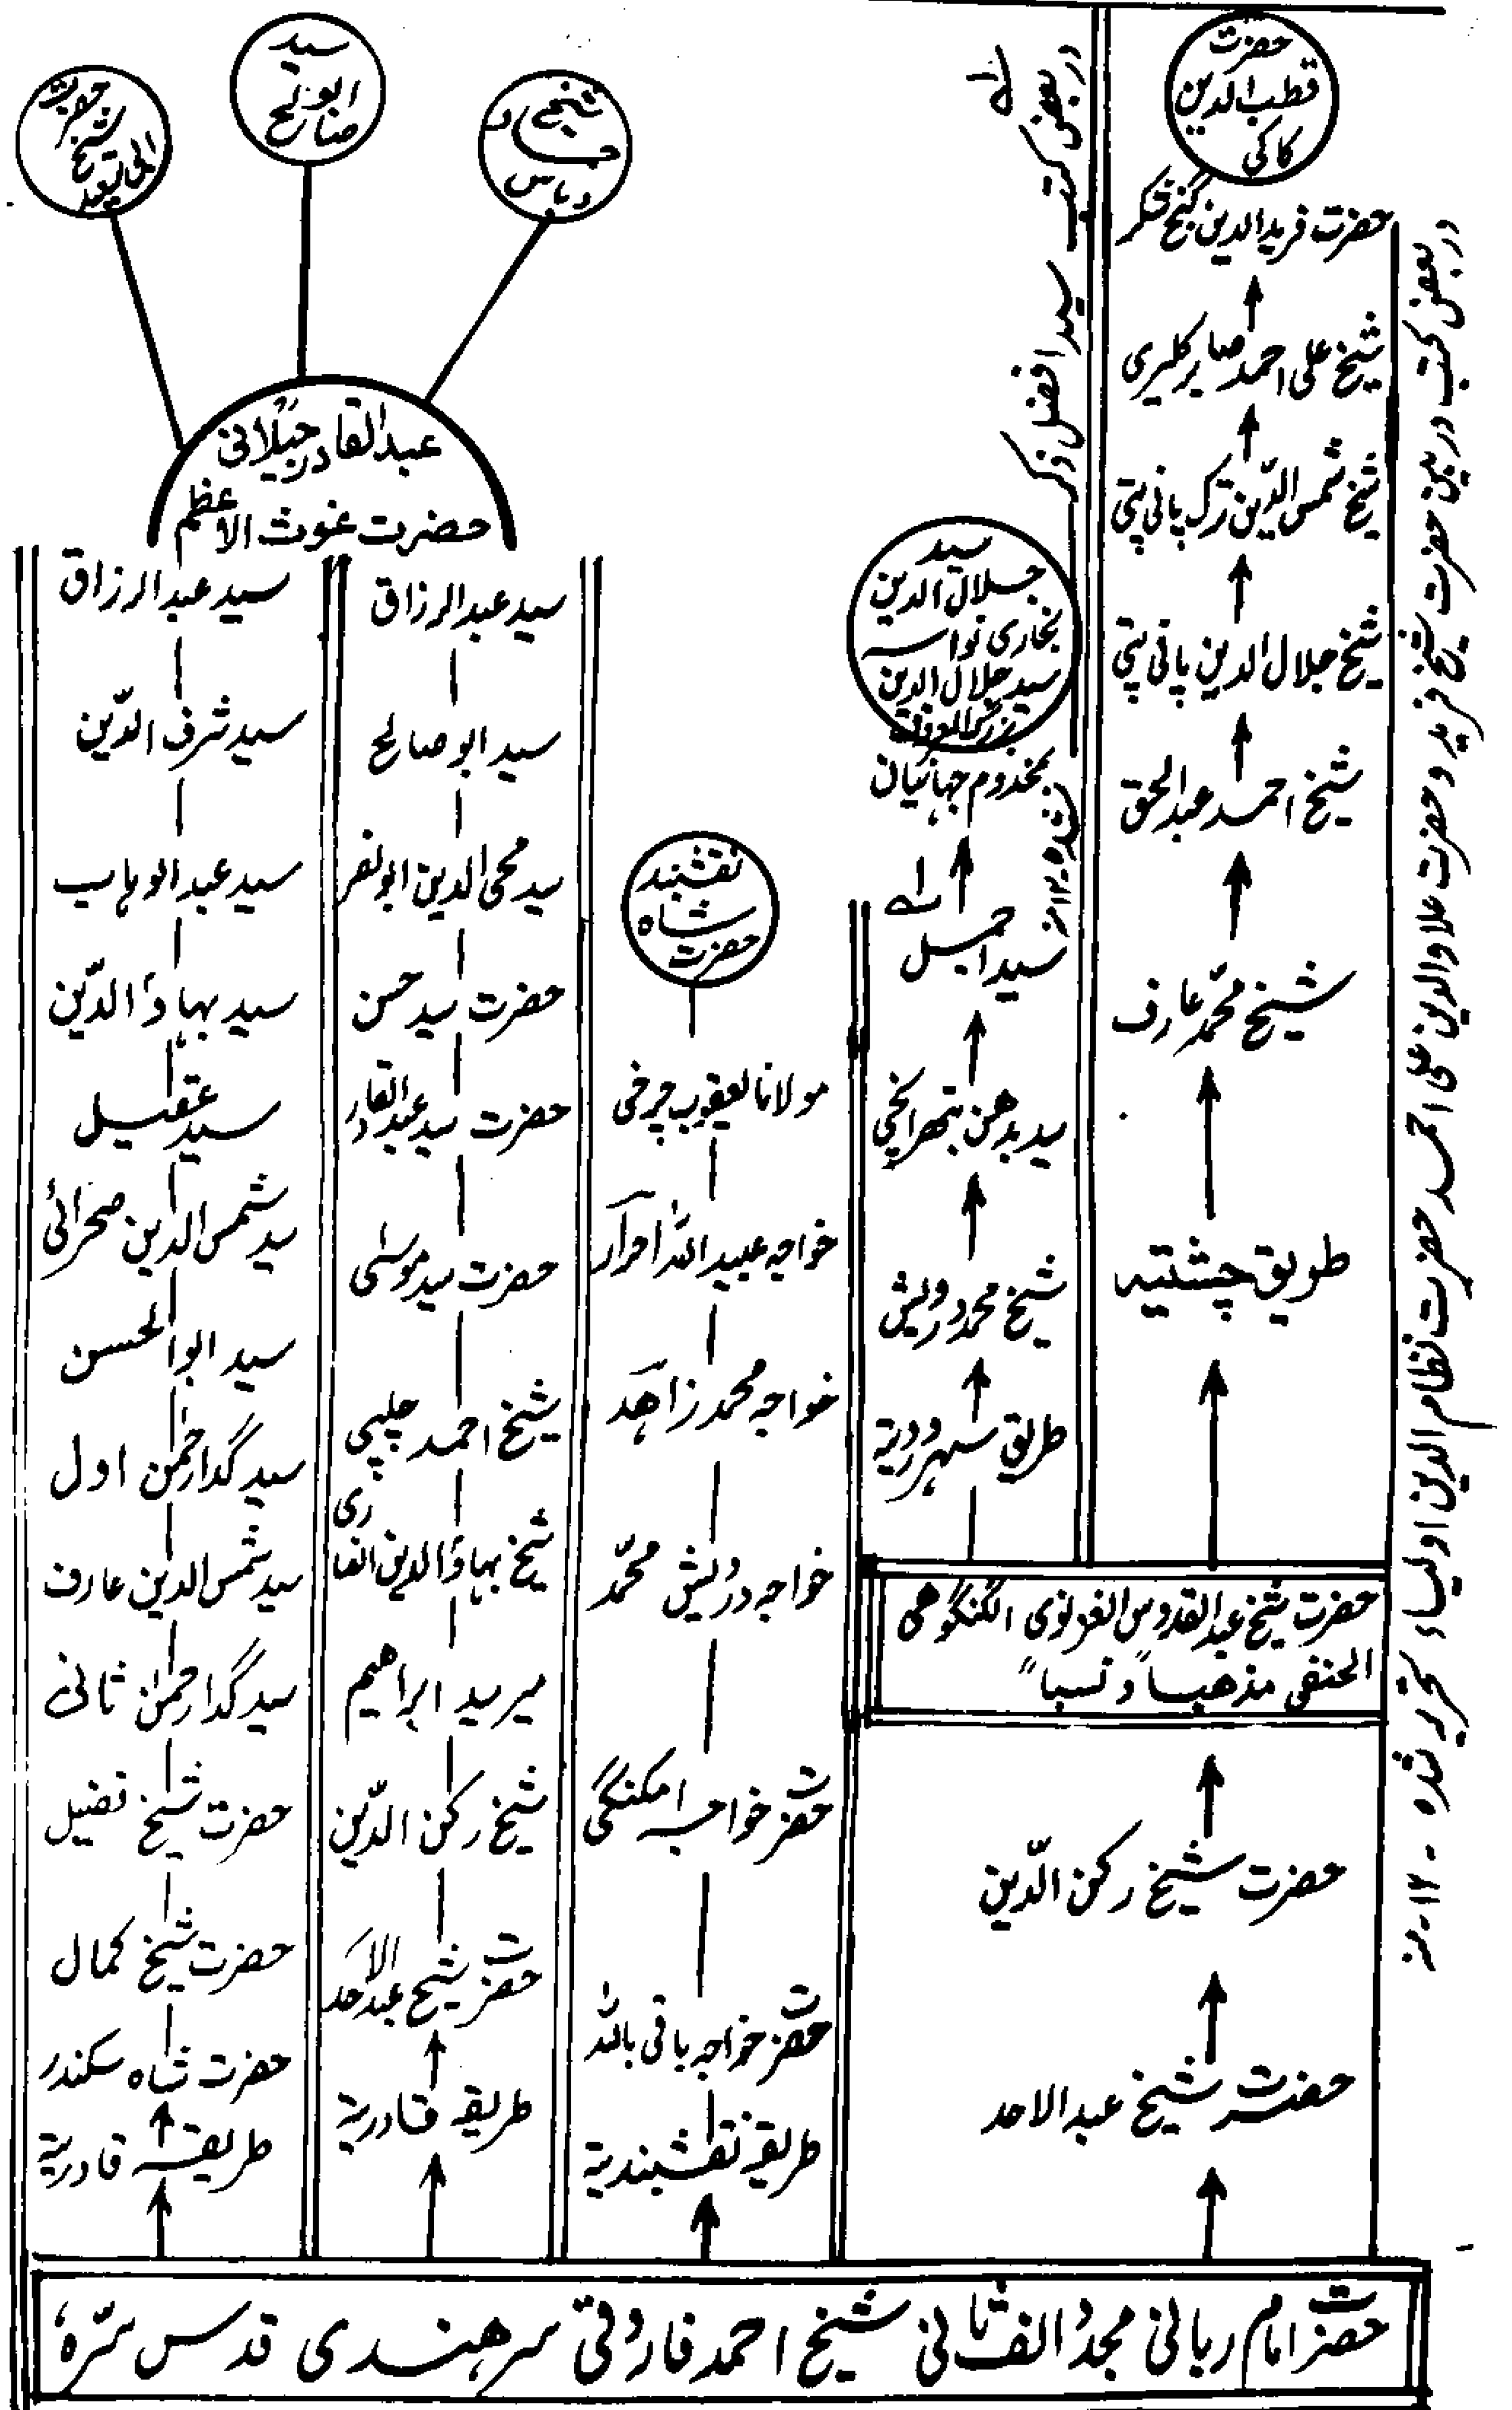 حضرت
قطب الدین
کاکی
حضرت فریدالدین گنج شکر
شیخ علی احمد صابر کلیری
شیخ شمس الدّین ترک پانی پتی
شیخ جلال الدین پانی پتی
شیخ احمد عبدالحق
شیخ محمّد عارف
طریق چشتیہ
در بعض کتب در بین حضرت شیخ فرید و حضرت علاوالدین علی احمد حضرت نظام الدین اولیاء تحریر شدہ - ۱۲
در بعض کتب سید افضل ذکر
شدہ ۱۲
سید
جلال الدین
بخاری نواسہ
سید جلال الدین
بزرگ المعروف
بمخدوم جہانیان
سید اجمل
سید بدهن بتھرائچی
شیخ محمد درویش
طریق سہروردیہ
حضرت شیخ عبدالقدوس الغزنوی الگنگوھی
الحنفی مذھباً و نسباً
حضرت شیخ رکن الدّین
حضرت شیخ عبدالاحد
نقشبند
شاہ
حضرت
مولانا یعقوب چرخی
خواجہ عبیداللہ احرار
خواجہ محمد زاھد
خواجہ درویش محمّد
حضرت خواجہ امکنگی
حضرت خواجہ باقی باللہ
طریقہ نقشبندیہ
سید
ابو
صالح
شیخ حماد
دباس
حضرت
شیخ
عبدالقادر جیلانی
حضرت غوث الاعظم
سید عبدالرزاق
سید ابو صالح
سید محی الدین ابو نصر
حضرت سید حسن
حضرت سید عبدالقادر
حضرت سید موسٰی
شیخ احمد چلپی
شیخ بہاؤالدین انصاری
میر سید ابراھیم
شیخ رکن الدّین
حضرت شیخ عبدالاحد
طریقہ قادریہ
سید عبدالرزاق
سید شرف الدّین
سید عبدالوہاب
سید بہاؤالدّین
سید عقیل
سید شمس الدین صحرائی
سید ابوالحسن
سید گدارحمٰن اول
سید شمس الدین عارف
سید گدارحمٰن ثانی
حضرت شیخ فضیل
حضرت شیخ کمال
حضرت شاہ سکندر
طریقہ قادریہ
حضرت امام ربانی مجدد الف ثانی شیخ احمد فاروقی سرھندی قدس سّرہ